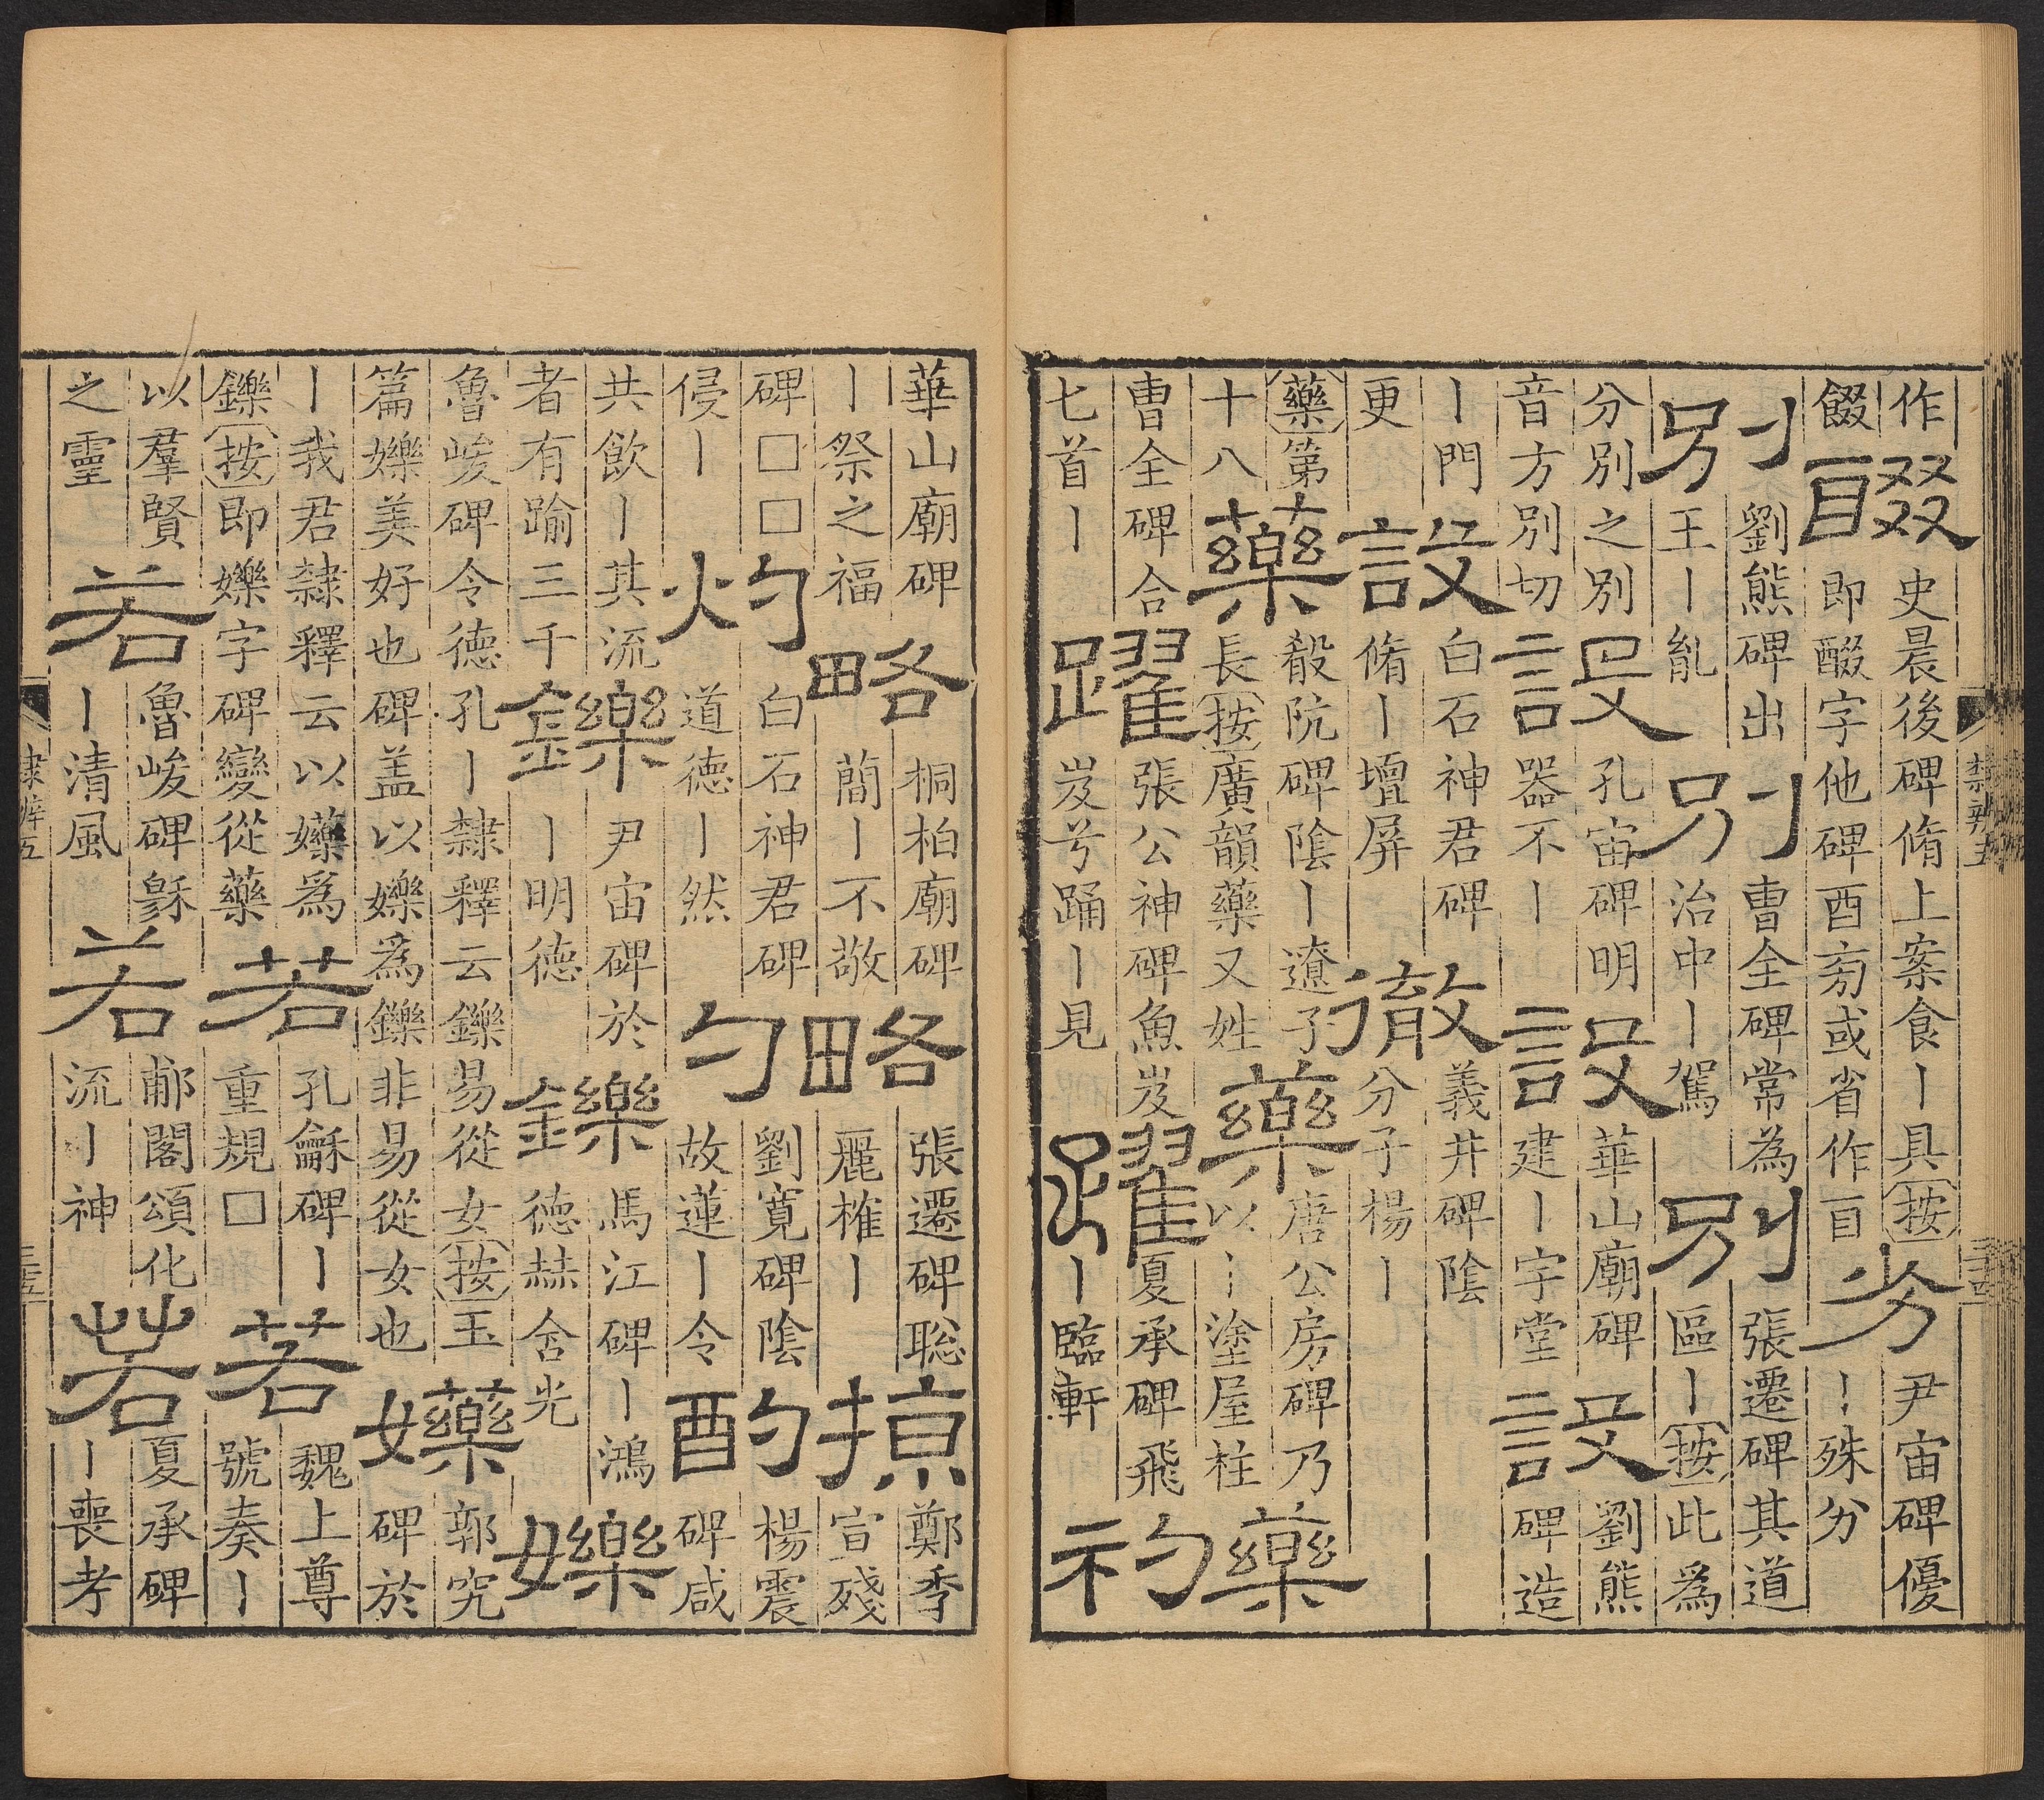 作餟醊史晨後碑脩上案食丨具按即醊字他碑酉旁或省作𦣻劣尹宙碑優丨殊分
別劉熊碑出王丨亂別曹全碑常為治中丨駕別張遷碑其道區丨按此爲
分別之別音方別切設孔宙碑明器不丨設華山廟碑建丨宇堂設劉熊碑造
丨門更設白石神君碑脩丨壇屏徹義井碑陰分子楊丨
藥第十八藥殽阬碑陰丨遼子長按廣韻藥又姓藥唐公房碑乃以丨塗屋柱藥
曹全碑合七首丨躍張公神碑魚岌兮踊丨見躍夏承碑飛丨臨軒礿
隸辨五
華山廟碑丨祭之福略桐柏廟碑簡丨不敬略張遷碑聡麗榷丨掠鄭季宣殘
碑□□侵丨灼白石神君碑道德丨然勺劉寬碑陰故蓮丨令酌楊震碑咸
共飲丨其流者有踰三千鑠尹宙碑於丨明德鑠馬江碑丨鴻德赫含光㜰
魯峻碑令德孔丨隸釋云鑠易從女按玉篇㜰美好也碑盖以㜰爲鑠非易從女也𡤬郭究碑於
丨我君隸釋云以𡤬爲鑠按即㜰字碑變從藥若孔龢碑丨重規□若魏上尊號奏丨
以羣賢之靈若魯峻碑繇丨清風若郙閣頌化流丨神若夏承碑丨喪考
隸辨五
三十五